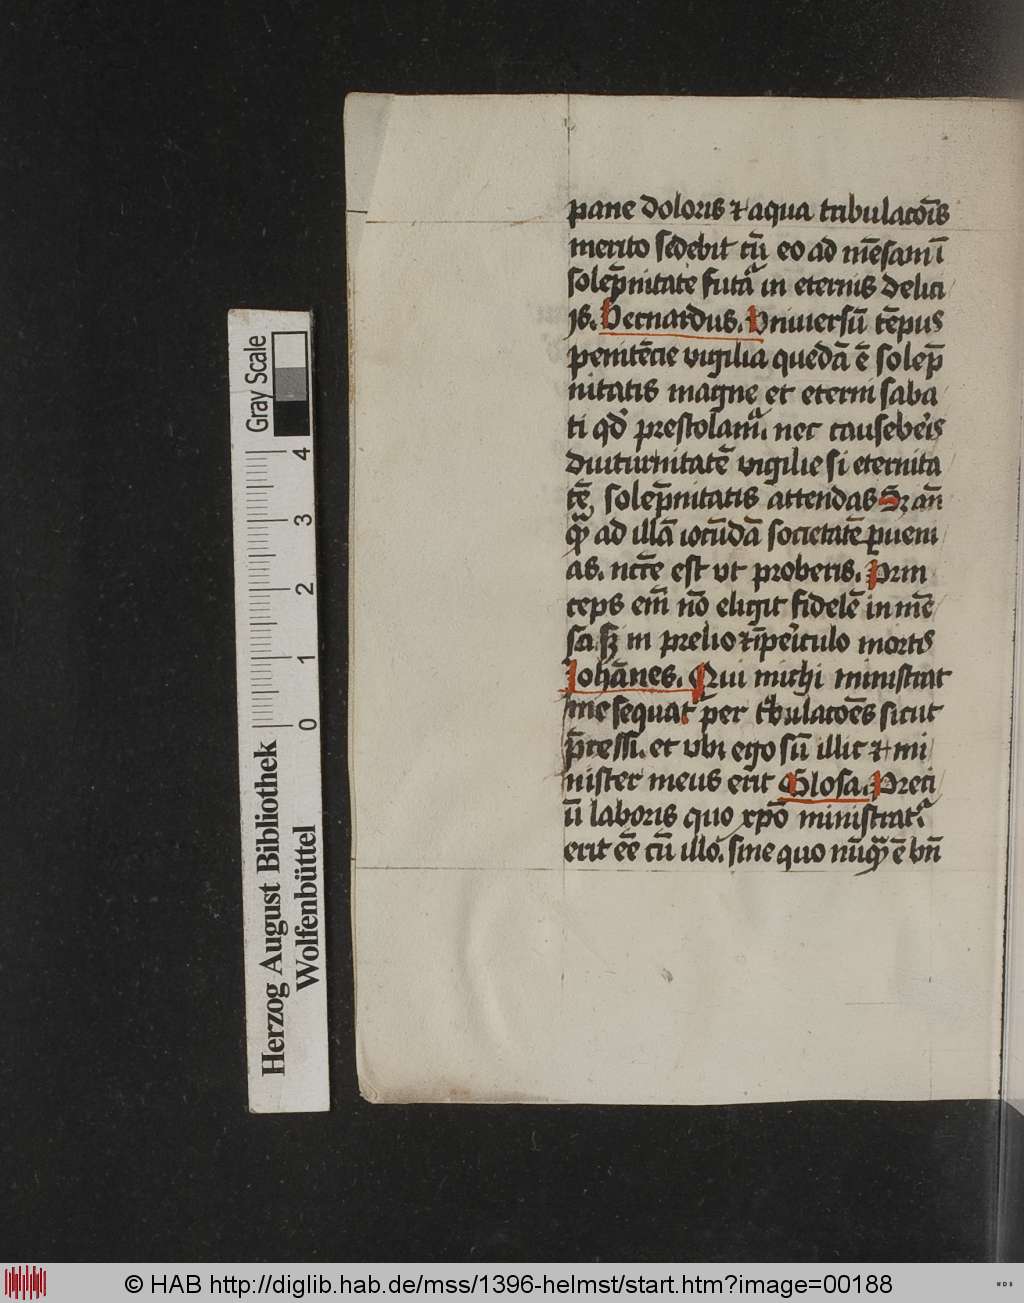 pane doloris ⁊ aqua tribulacōīs
merito sedebit cū eo ad mēsam ī
solēpnitate futa in eternis delici
js. Bernardus. Vniuersū tēpus
penitēcie vigilia quedā ē solēp
nitatis magne et eterni saba
ti qd prestolam. nec causeberis
diuturnitatē vigilie si eternita
tē, solēpnitatis attendas Sꝫ an̄
qͣ ad illā iocūdā societatē ꝑueni
as. nccē est vt proberis. Prin
ceps em̄ nō eligit fidelē in mē
sa sꝫ in prelio ⁊ īpeiculo mortis
Johānes. Qui michi ministrat
me sequat̉ per tbulacōēs sicut
p̄cessi. et vbi ego sū illic ⁊ mi
nister meus erit Glosa. Preci
ū laboris quo xp̄o ministrat
erit eē cū illo. sine quo nūqͣ ē bn̄
Gray Scale
0 1 2 3 4
Herzog August Bibliothek
Wolfenbüttel
© HAB http://diglib.hab.de/mss/1396-helmst/start.htm?image=00188